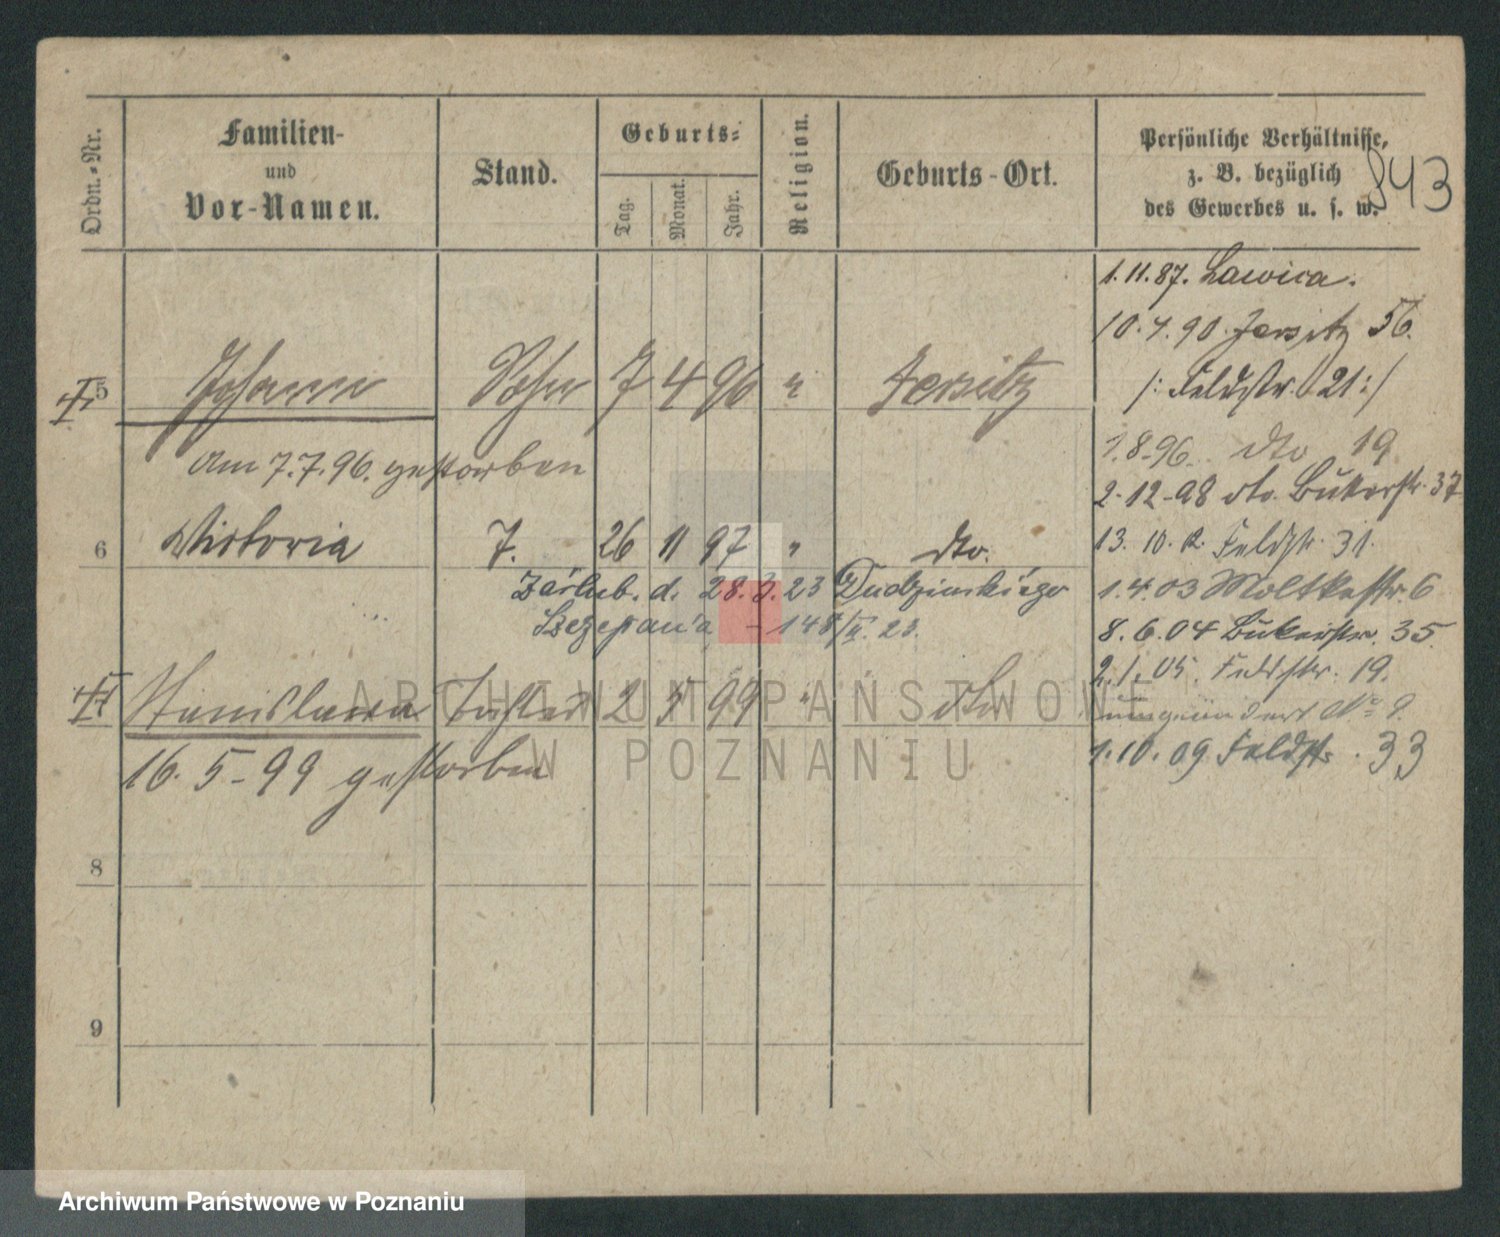 Ordn.-Nr.
Familien-
und
Vor-Namen.
Stand.
Geburts-
Tag.
Monat.
Jahr.
Religion.
Geburts-Ort.
Persönliche Verhältnisse,
z. B. bezüglich
des Gewerbes u. s. w.
843
1.11.87. Lawica.
10.4.90. Jersitz 56.
5 Johann Sohn 7 4 96 " Jersitz
/: Feldstr. 21:/
Am 7.7.96. gestorben
1.8.96. dto 19
2.12.98 dto. Bukerstr. 37
6 Victoria T. 26 11 97 " dto.
13. 10. Feldstr. 31.
Zaślub. d. 28.3.23 Dudzińskiego
1.4.03 Moltkestr. 6
Szczepana 148/II. 23.
8.6.04 Bukerstr. 35.
2.1.05. Feldstr. 19.
Stanislawa Tochter 2 5 99 " dto
No 9.
16.5-99 gestorben
1.10.09 Feldstr. 33
8
9
ARCHIWUM PAŃSTWOWE
W POZNANIU
Archiwum Państwowe w Poznaniu